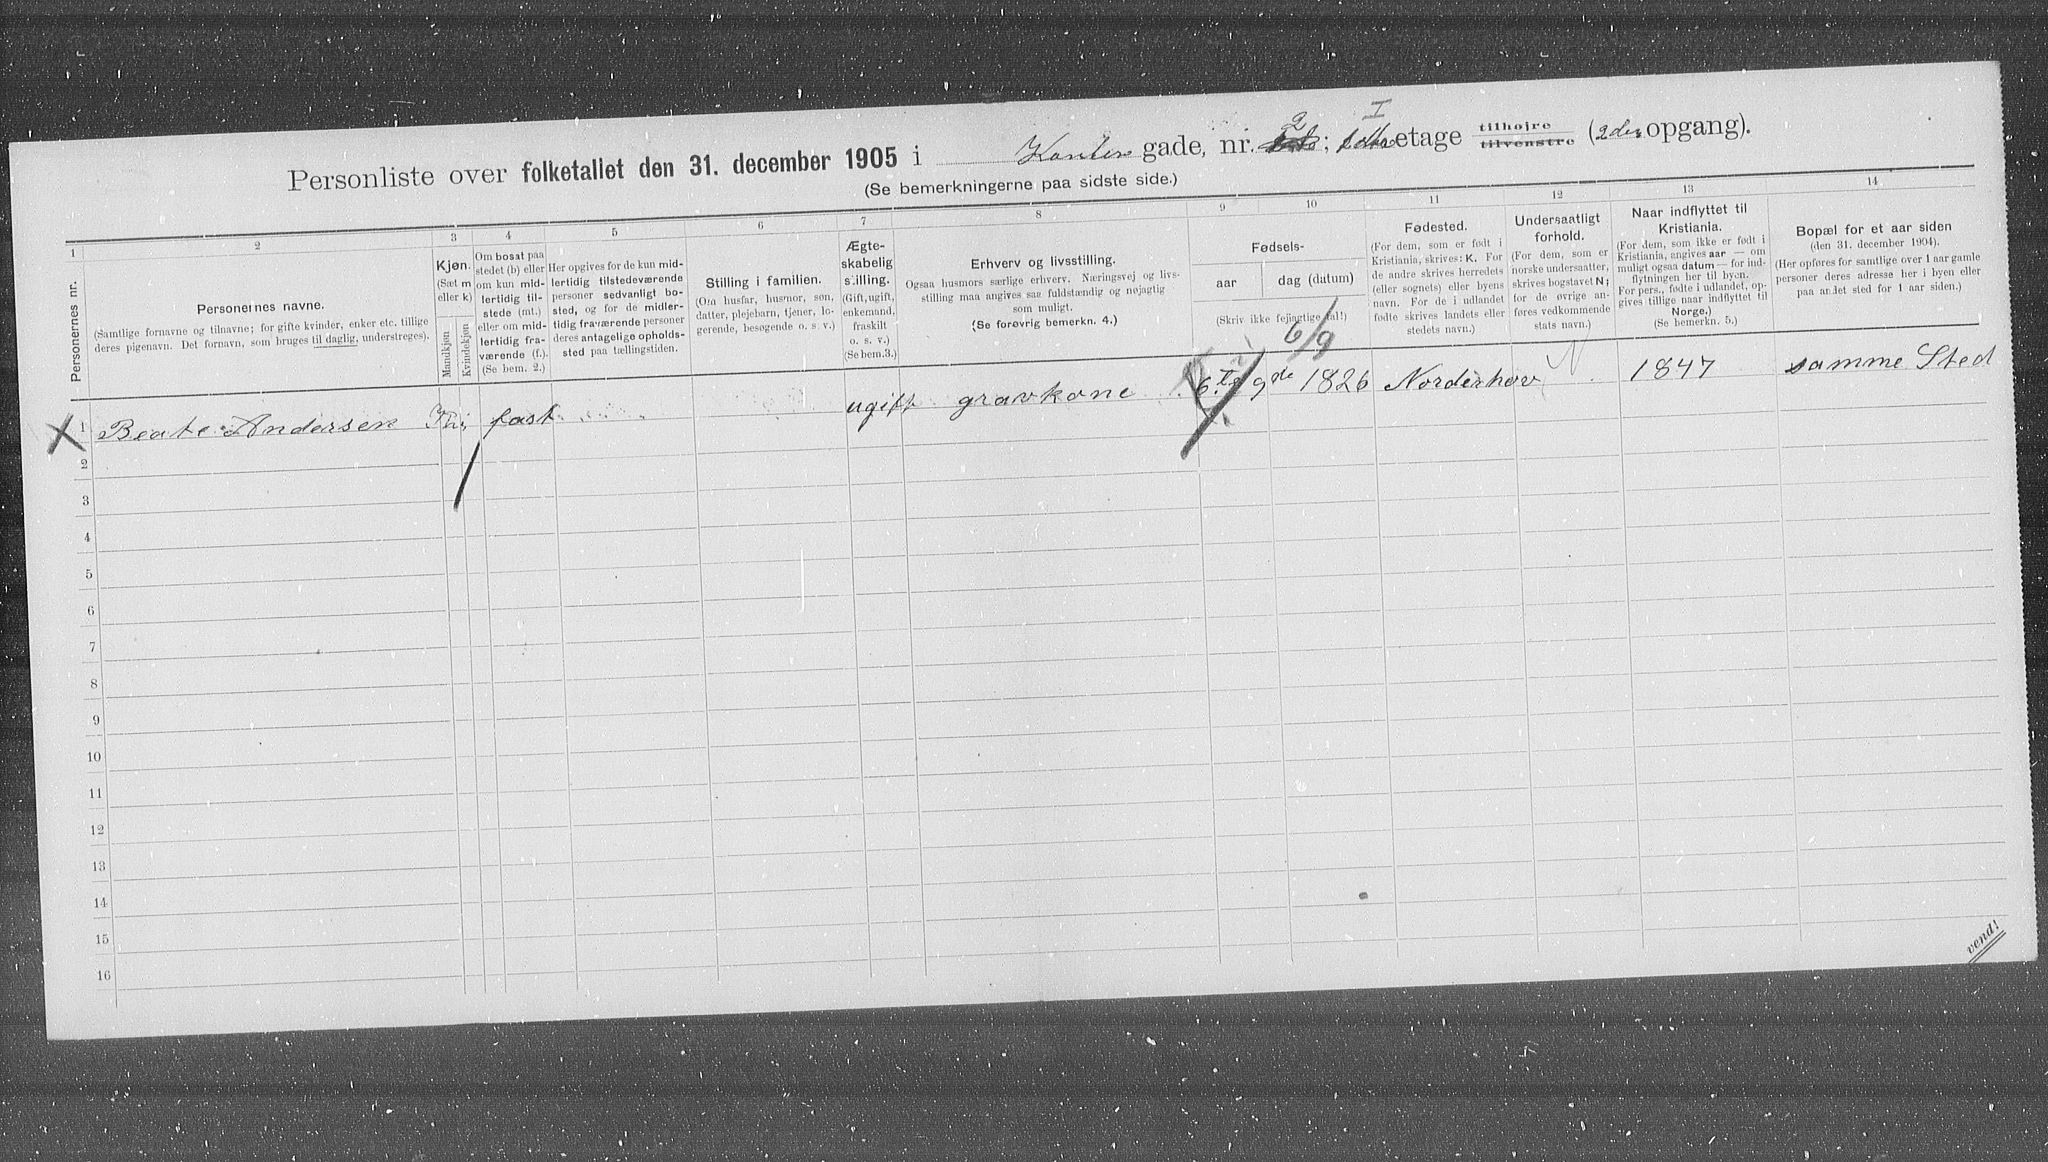 Personliste over folketallet den 31. december 1905 i Kanten gade, nr. 2; I etage tilhøjre tilvenstre (2den opgang).
(Se bemerkningerne paa sidste side.)
1 2 3 4 5 6 7 8 9 10 11 12 13 14
Personernes nr.
Personernes navne.
(Samtlige fornavne og tilnavne; for gifte kvinder, enker etc. tillige
deres pigenavn. Det fornavn, som bruges til daglig, understreges).
Kjøn.
(Sæt m
eller k)
Mandkjøn
Kvindekjøn
Om bosat paa
stedet (b) eller
om kun mid-
lertidig til-
stede (mt.)
eller om mid-
lertidig fra-
værende (f.)
(Se bem. 2.)
Her opgives for de kun mid-
lertidig tilstedeværende
personer sedvanlig bo-
sted, og for de midler-
tidig fraværende personer
deres antagelige opholds-
sted paa tællingstiden.
Stilling i familien.
(Om husfar, husmor, søn,
datter, plejebarn, tjener, lo-
gerende, besøgende o. s. v.)
Ægte-
skabelig
stilling.
(Gift, ugift,
enkemand,
fraskilt
o. s. v.)
(Se bem.3.)
Erhverv og livsstilling.
Ogsaa husmors særlige erhverv. Næringsvej og livs-
stilling maa angives saa fuldstændig og nøjagtig
som muligt.
(Se forøvrig bemerkn. 4.)
Fødsels-
aar
dag (datum)
(Skriv ikke fejagtige tal!)
Fødested.
(For dem, som er født i
Kristiania, skrives: K. For
de andre skrives herredets
(eller sognets) eller byens
navn. For de i udlandet
fødte skrives landets eller
stedets navn.)
Undersaatligt
forhold.
(For dem, som er
norske undersaatter,
skrives bogstavet N;
for de øvrige an-
føres vedkommende
stats navn.)
Naar indflyttet til
Kristiania.
(For dem, som ikke er født i
Kristiania, angives aar — om
muligt ogsaa datum — for ind-
flytningen her til byen.
For pers., født e i udlandet, op-
gives tillige naar indflyttet til
Norge.)
(Se bemerkn. 5.)
Bopæl for et aar siden
(den 31. december 1904).
(Her opføres for samtlige over 1 aar gamle
personer deres adresse her i byen eller
paa andet sted for 1 aar siden.)
6/9
1 Beate Andersen fast ugift gravkone 6.te 9de 1826 Norderhov N 1847 samme Sted
2
3
4
5
6
7
8
9
10
11
12
13
14
15
16
vend!